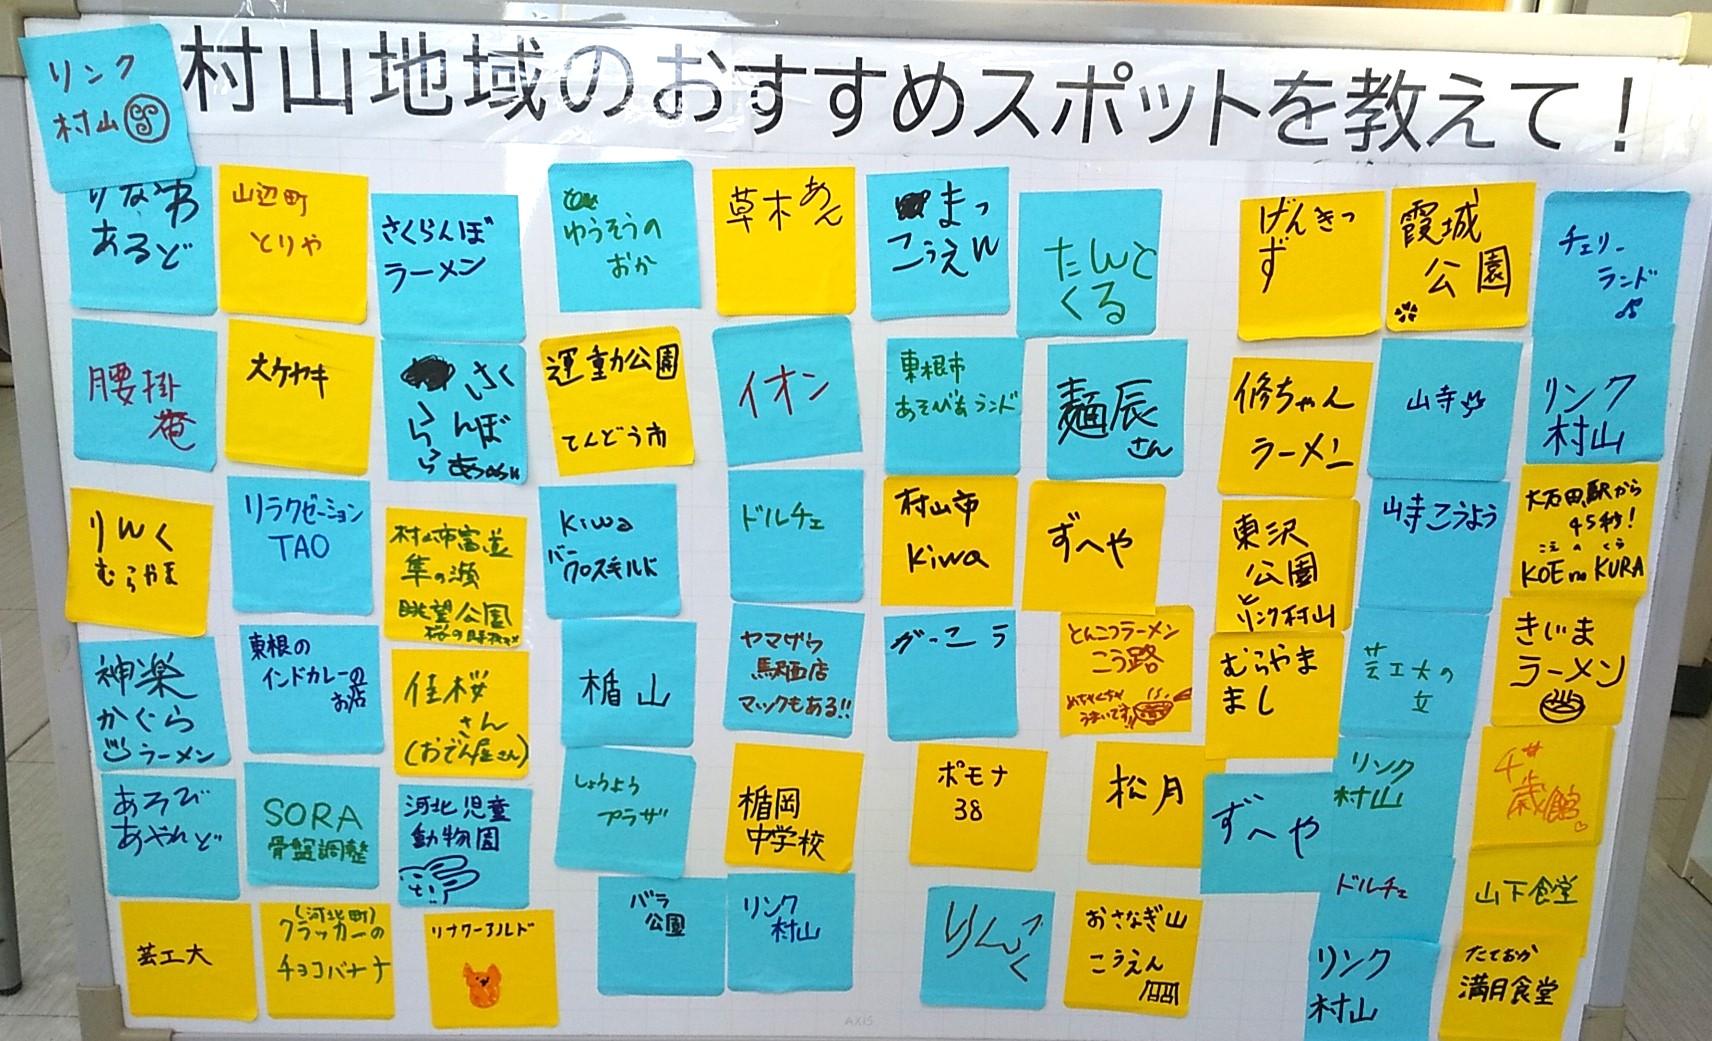 村山地域のおすすめスポットを教えて!
リンク
村山
りなわ
あるど
山辺町
とりや
さくらんぼ
ラーメン
ゆうそうの
おか
草木あん
まっ
こうえん
たんと
くる
げんきっ
ず
霞城
公園
チェリー
ランド
腰掛
庵
大ケヤキ
さく
らんぼ
運動公園
てんどう市
イオン
東根市
あそびあランド
麺辰
さん
修ちゃん
ラーメン
山寺
リンク
村山
りんく
むらやま
リラクゼーション
TAO
村山市富並
隼の瀬
眺望公園
kiwa
バー
クロスモルド
ドルチェ
村山市
kiwa
ずへや
東沢
公園
と
リンク村山
山寺こうよう
大石田駅から
45秒!
こえ の くら
KOE no KURA
神楽
かぐら
ラーメン
東根の
インドカレーの
お店
佳桜
さん
(おでん屋さん)
楯山
ヤマザワ
駅西店
マックもある!!
がっこう
とんこつラーメン
こう路
めちゃくちゃ
うまいです!!
むらやま
まし
芸工大の
丘
きじま
ラーメン
あそび
あやれど
SORA
骨盤調整
河北児童
動物園
しょうよう
プラザ
楯岡
中学校
ポモナ
38
松月
ずへや
リンク
村山
千歳館
芸工大
(河北町)
クラッカーの
チョコバナナ
リナワールド
バラ
公園
リンク
村山
りんく
おさなぎ山
こうえん
ドルチェ
山下食堂
リンク
村山
たておか
満月食堂
AXIS